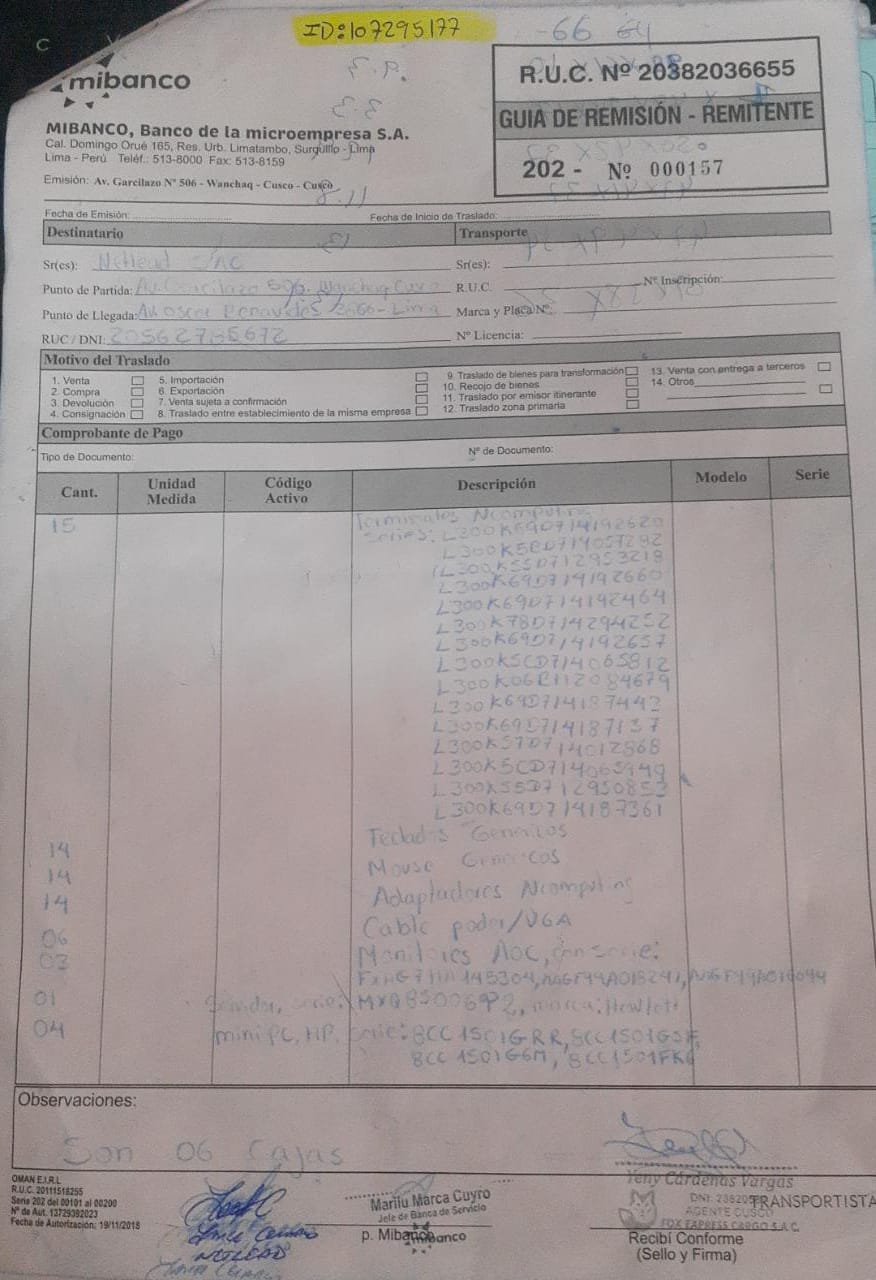 ID:107295177
-66 64
mibanco
R.U.C. Nº 20382036655
GUIA DE REMISIÓN - REMITENTE
202 - Nº 000157
MIBANCO, Banco de la microempresa S.A.
Cal. Domingo Orué 165, Res. Urb. Limatambo, Surquillo - Lima
Lima - Perú Teléf.: 513-8000 Fax: 513-8159
Emisión: Av. Garcilazo Nº 506 - Wanchaq - Cusco - Cusco
Fecha de Emisión:
Fecha de Inicio de Traslado:
Destinatario
Transporte
Sr(es): Netlead SAC
Sr(es):
Punto de Partida: Av. Garcilazo 506. Wanchaq Cusco
R.U.C. Nº Inscripción:
Punto de Llegada: Av. Oscar Benavides - Lima
Marca y Placa Nº:
RUC / DNI: 20562785672
Nº Licencia:
Motivo del Traslado
1. Venta
2. Compra
3. Devolución
4. Consignación
5. Importación
6. Exportación
7. Venta sujeta a confirmación
8. Traslado entre establecimiento de la misma empresa
9. Traslado de bienes para transformación
10. Recojo de bienes
11. Traslado por emisor itinerante
12. Traslado zona primaria
13. Venta con entrega a terceros
14. Otros
Comprobante de Pago
Tipo de Documento:
Nº de Documento:
Cant.
Unidad Medida
Código Activo
Descripción
Modelo
Serie
15 Terminales Ncomputing
Series: L300K69D714192620
L300K5CD714057292
L300K55D712953218
L300K69D714192660
L300K69D714192464
L300K78D714294252
L300K69D714192657
L300K5CD714065812
L300K06E112084679
L300K69D714187442
L300K69D714187137
L300K57D714012868
L300K5CD714065949
L300K55D712950853
L300K69D714187361
14 Teclados Genericos
14 Mouse Genericos
14 Adaptadores Ncomputing
06 Cable poder/VGA
03 Monitores AOC, con serie:
01 Servidor, serie: MXQ85006P2, marca: Hewlett
04 mini PC, HP, serie: 8CC1501GRR, 8CC1501GSF,
8CC1501GGM, 8CC1501FKG
Observaciones:
Son 06 Cajas
OMAN E.I.R.L
R.U.C. 20111518255
Serie 202 del 00101 al 00200
Nº de Aut. 13729392023
Fecha de Autorización: 19/11/2018
NETLEAD
Marilu Marca Cuyro
Jefe de Banca de Servicio
p. Mibanco
mibanco
Yeny Cardenas Vargas
TRANSPORTISTA
AGENTE CUSCO
FOX EXPRESS CARGO S.A.C.
Recibí Conforme
(Sello y Firma)